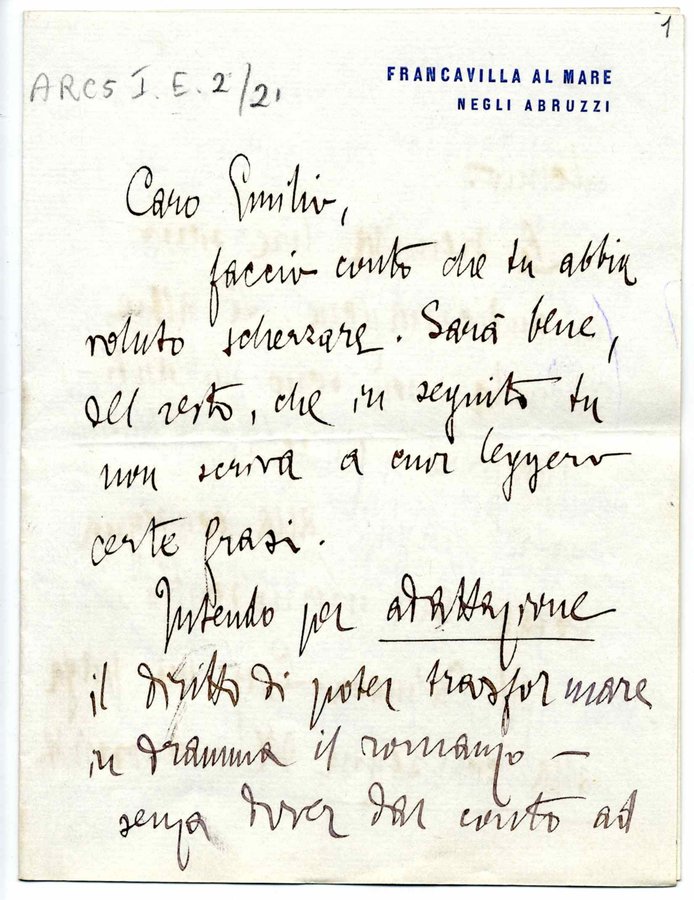 1
ARC5 I. E. 2/21
FRANCAVILLA AL MARE
NEGLI ABRUZZI
Caro Emilio,
faccio conto che tu abbia
voluto scherzare. Sarà bene,
del resto, che in seguito tu
non scriva a cuor leggero
certe frasi.
Intendo per adattazione
il diritto di poter trasformare
in dramma il romanzo —
senza dover dar conto ad